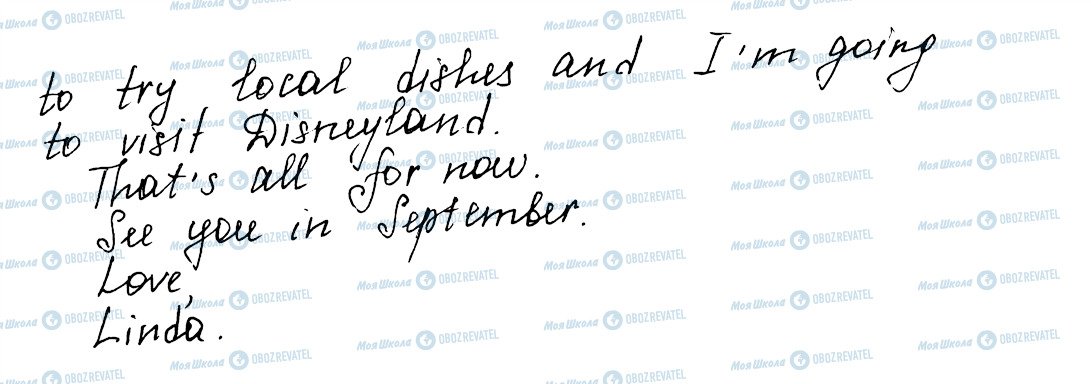 to try local dishes and I'm going
to visit Disneyland.
That's all for now.
See you in September.
Love,
Linda.